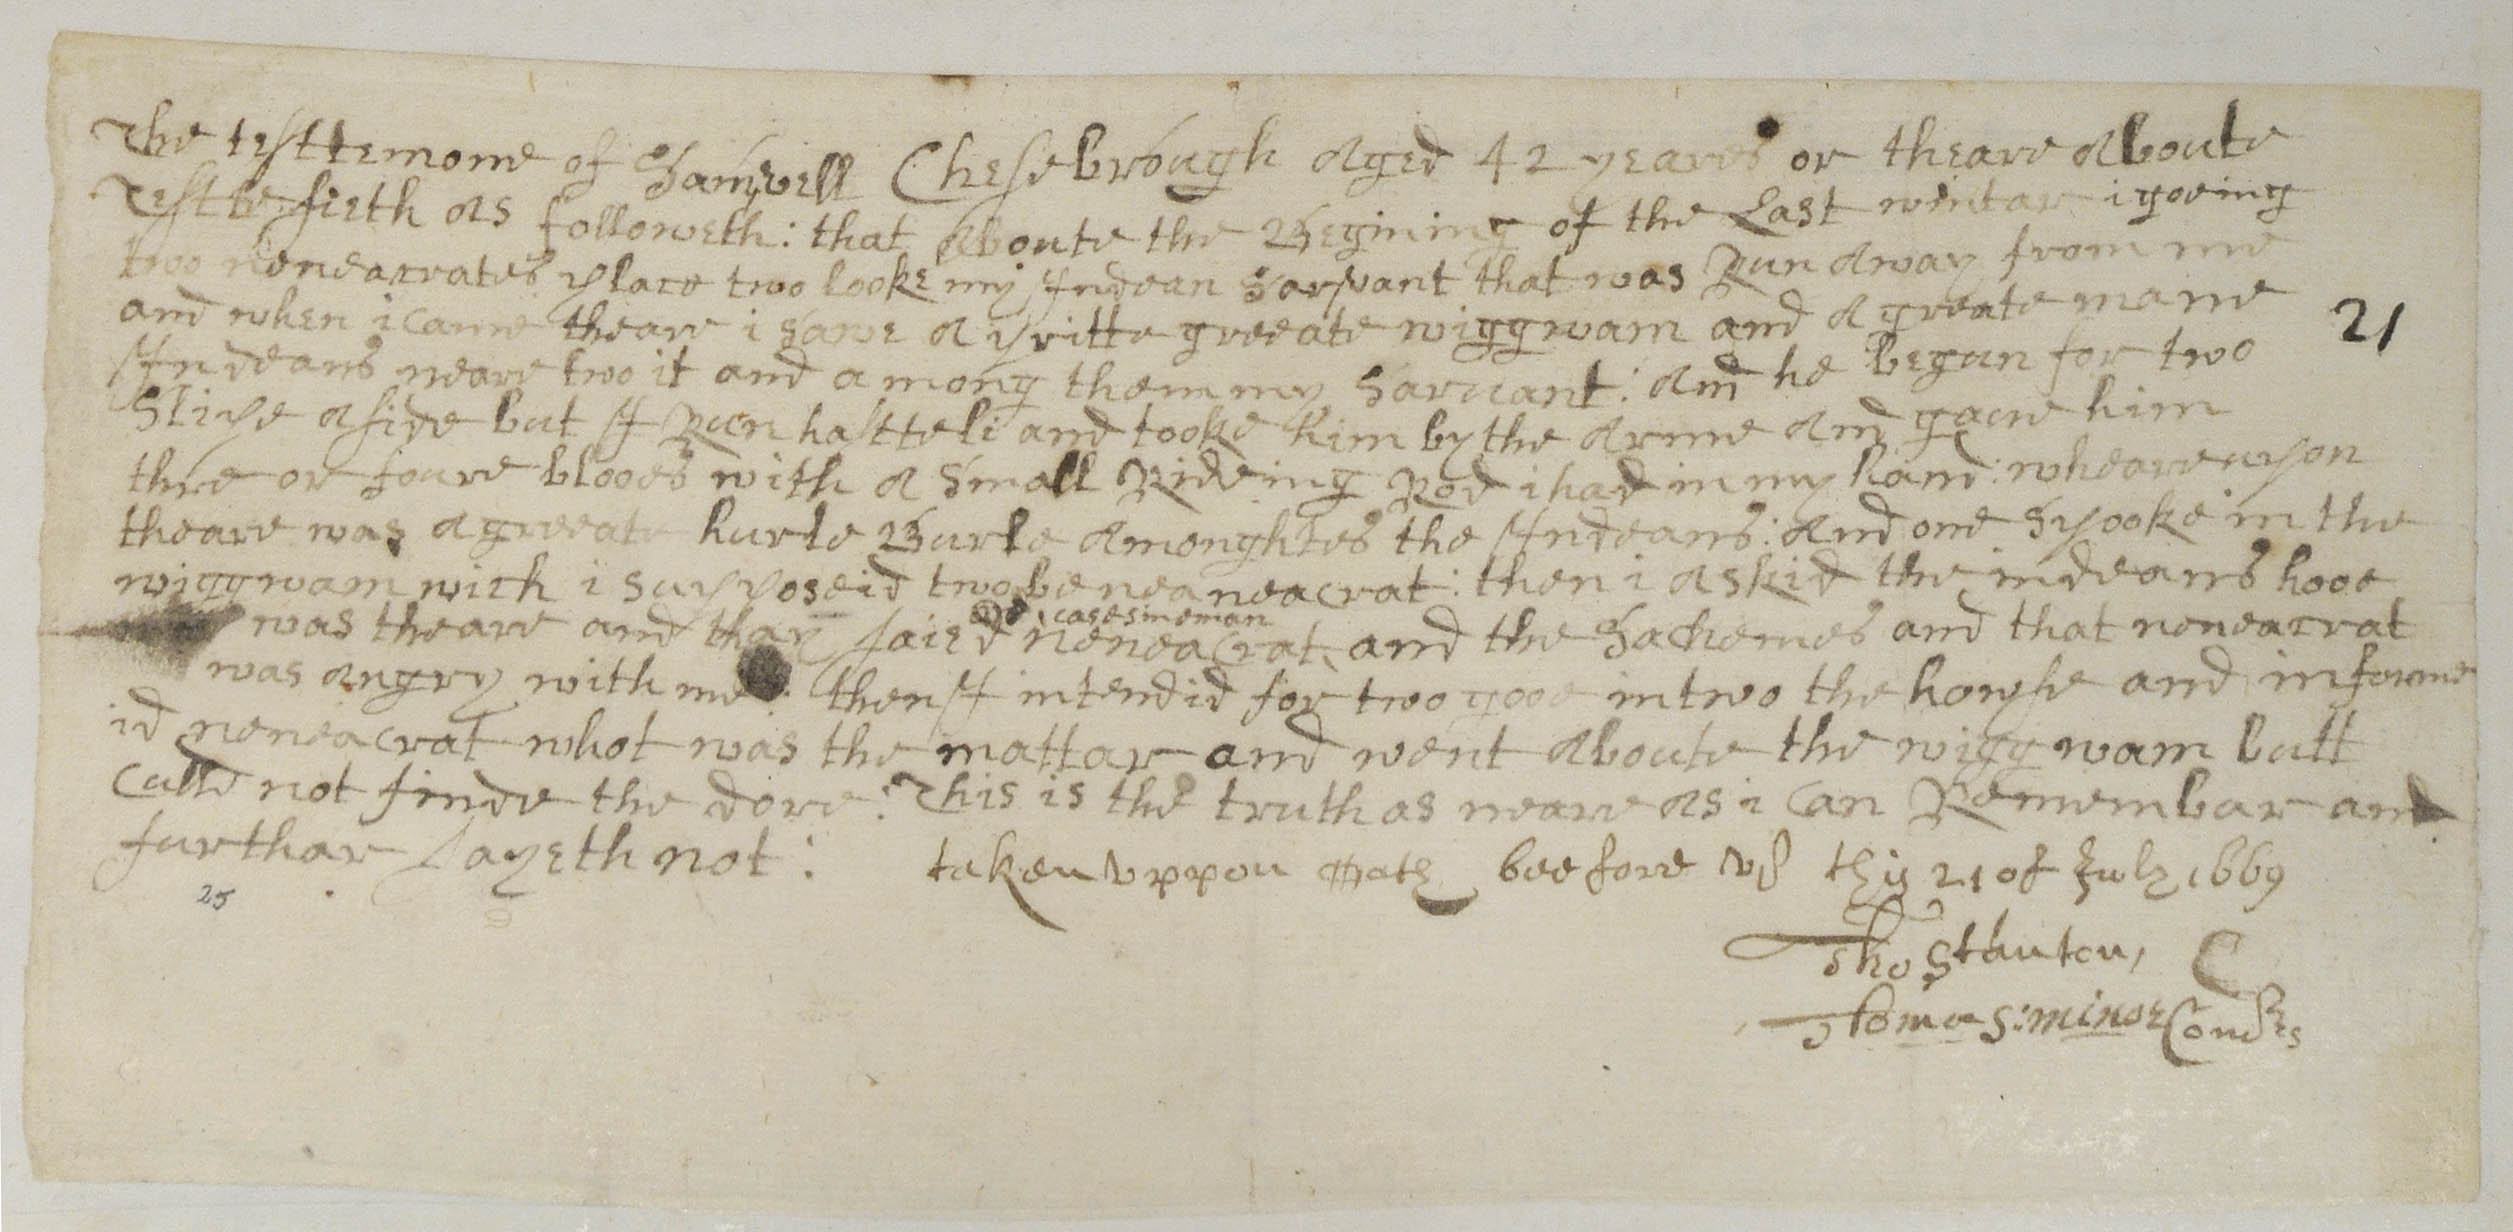 The testtemone of Samwell Chesebrough Aged 42 yeares or theare aboute
Testtefieth as followeth: that aboute the Begining of the Last wintar i goeing
two neneacrates place two looke my Indean Sarvant that was Run away from me
and when i came theare i sawe a pritte greeate wiggwam and a greate mane
Indeans neare two it and among them my Sarvant: and he began for two
Slipe aside but I Run hastteli and tooke him by the arme and gave him
thre or foure blooes with a Small Rideing Rod i had in my hand: wheareupon
theare was a greeate hurle Burle amonghtes the Indeans: and one Spooke in the
wiggwam wich i supposeid two be neaneacrat: then i askid the indeans hooe
was theare and thay saied neneacrat and the Sachemes and that neneacrat
casesineman
was angry with me: then I intendid for two gooe in two the howse and informe
id neneacrat whot was the mattar and went aboute the wigg wam butt
Culld not finde the dore: This is the truth as neare as i Can Remembar and
furthar Sayeth not: taken vppon Oath beefore vs this 21 of July 1669
Tho Stanton, C
Thomas: minor
21
25